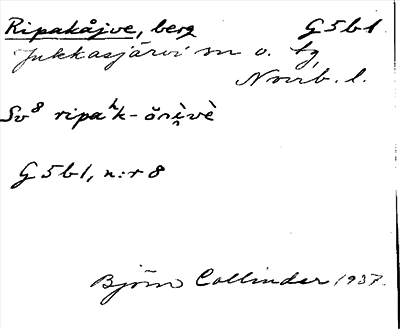 Ripakåjve, berg G5b1
Jukkasjärvi sn o. tg,
Norrb. l.
Sv⁸ ripaʰk-ŏri̭vè
G5b1, n:r 8
Björn Collinder 1937.